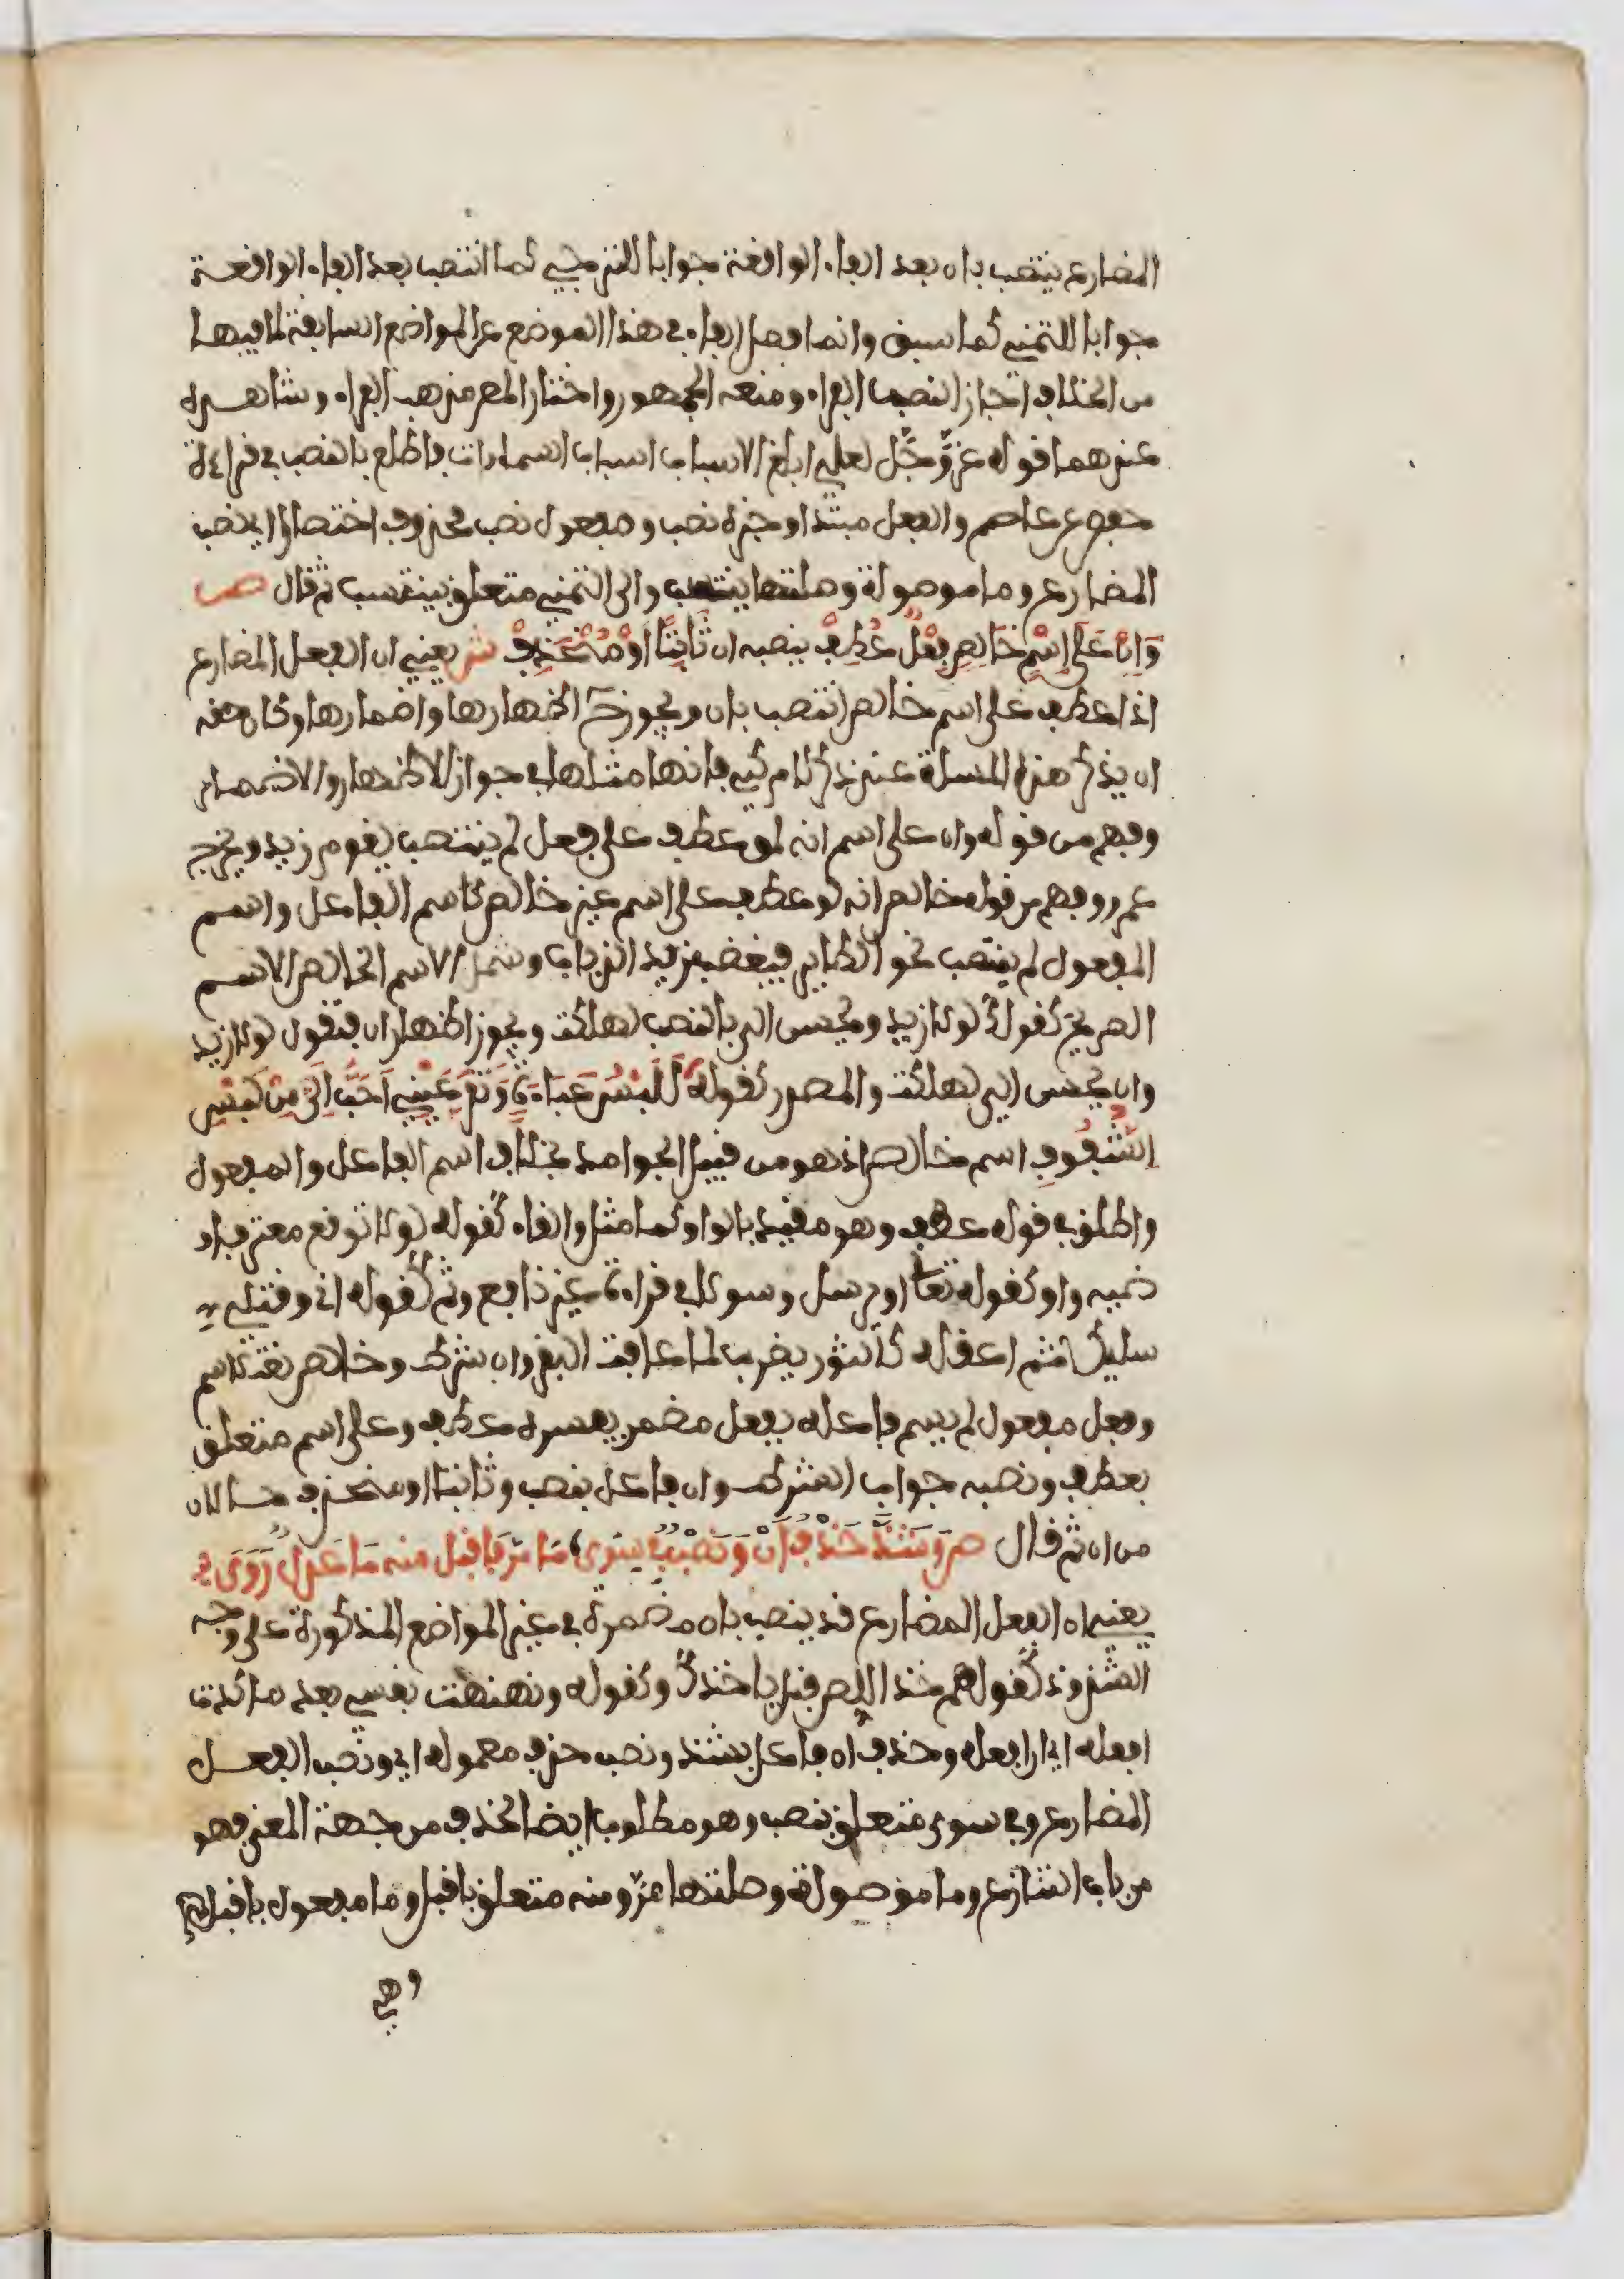 المضارع ينتصب بان بعد الفاء الواقعة جوابا للترجي كما انتصب بعد الفاء الواقعة
جوابا للتمني كما سبق وانما فصل الفاء في هذا الموضع عن المواضع السابقة لما فيها
من الخلاف اجاز النصب الفراء ومنعه الجمهور واختار المص مذهب الفراء وشاهده
عندهما قوله عز وجل لعلي ابلغ الاسباب اسباب السماوات فاطلع بالنصب في قراءة
حفص عن عاصم والفعل مبتدا وخبره نصب ومفعول نصب محذوف اختصارا اي نصب
المضارع وما موصولة وصلتها ينتصب والى التمني متعلق بينتسب ثم قال ص
وَان عَلى اِسْمٍ خَالِصٍ فِعْلٌ عُطِفْ ينصبه ان ثَابِتًا اَوْ مُنْحَذِفْ ش يعني ان الفعل المضارع
اذا عطف على اسم خالص انتصب بان ويجوز ح اظهارها واضمارها وكان حقه
ان يذكر هذه المسلة عند ذكر لام كي فانها مثلها في جواز الاظهار والاضمار
وفهم من قوله وان على اسم انه لو عطف على فعل لم ينتصب يقوم زيد ويخرج
عمرو وفهم من قوله خالص انه لو عطف على اسم غير خالص كاسم الفاعل واسم
المفعول لم ينتصب نحو الطاير فيغضب زيد الذباب وشمل الاسم الخالص الاسم
الصريح كقولك لولا زيد ويحسن الي بالنصب لهلكت ويجوز اظهار ان فتقول لولا زيد
وان يحسن الي لهلكت والمصدر كقوله لَلُبْسُ عَبَاءَةٍ وَتَقَرَّ عَيْنِي اَحَبُّ اِلَيَّ مِنْ لُبْسِ
الشُّفُوفِ اسم خالص اذ هو من قبيل الجوامد بخلاف اسم الفاعل والمفعول
واطلق في قوله عطف وهو مقيد بالواو كما مثل والفاء كقوله لولا توقع معتر فار
ضيه واو كقوله تعالى او يرسل رسولا في قراءة غير نافع وثم كقوله اني وقتلي
سليكا ثم اعقله كالثور يضرب لما عافت البقر وان شرط وخالص نعت لاسم
وفعل مفعول لم يسم فاعله بفعل مضمر يفسره عطف وعلى اسم متعلق
بعطف ونصبه جواب الشرط وان فاعل بنصب وثابتا او منحذف حالان
من ان ثم قال ص وَشَذَّ حَذْفُ اَنْ وَنَصْبٌ فِي سِوَى مَا مَرَّ فَاقْبَلْ منه مَا عَدْلٌ رَوَى
يعني ان الفعل المضارع قد ينصب بان مضمرة في غير المواضع المذكورة على وجه
الشذوذ كقولهم خذ اللص قبل ياخذك وكقوله ونهنهت نفسي بعد ما كدت
افعله اي ان افعله وحذف ان فاعل بشذ ونصب حذف معموله اي ونصب الفعل
المضارع وفي سوى متعلق بنصب وهو مطلوب ايضا لحذف من جهة المعنى فهو
من باب التنازع وما موصولة وصلتها مر ومنه متعلق باقبل وما مفعول باقبل
وهي